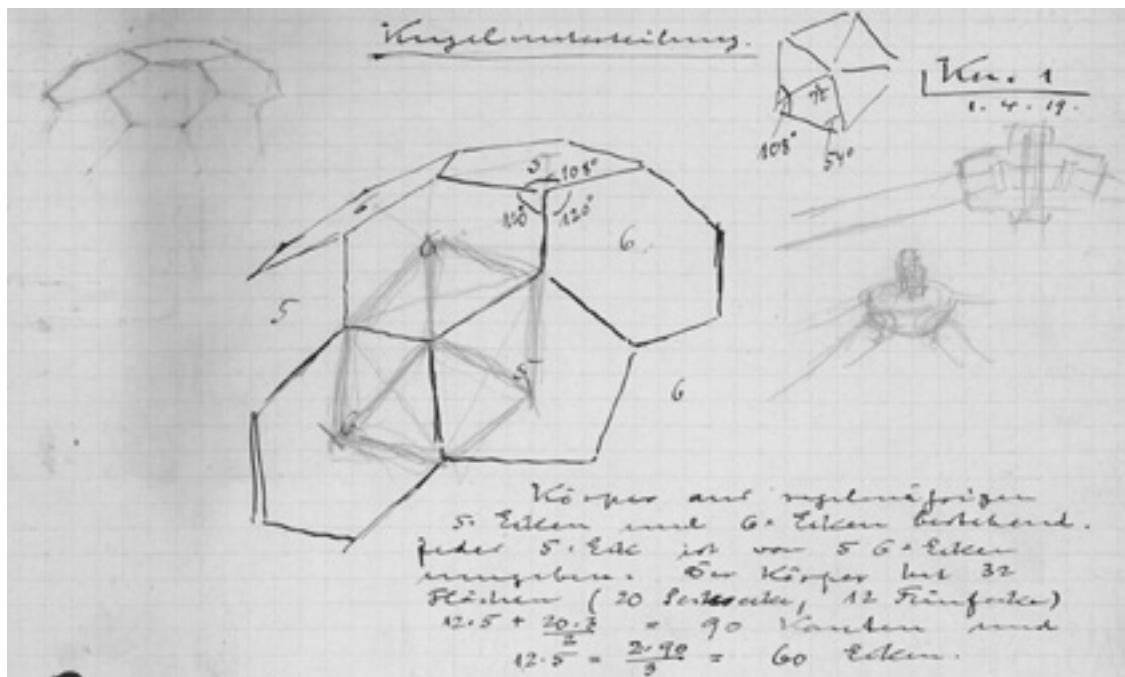 Kugelunterteilung.
Kn. 1
1. 4. 19.
72
108°
54°
5 108°
120° 120°
6
6
6
5
5
6
6
Körper aus regelmäßigen
5-Ecken und 6-Ecken bestehend.
Jedes 5-Eck ist von 5 6-Ecken
umgeben. Der Körper hat 32
Flächen (20 Sechsecke, 12 Fünfecke)
12·5 + 20·3/2 = 90 Kanten und
12·5 = 2·90/3 = 60 Ecken.